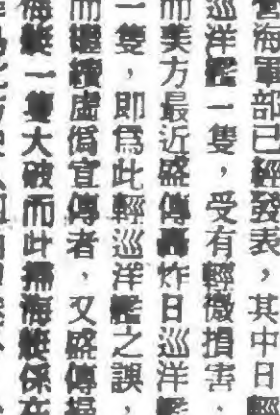 海軍部已經發表，其中日
巡洋艦一隻，受有輕微損害，
而美方最近盛傳轟炸日巡洋艦
一隻，即爲此輕巡洋艦之誤，
而繼續虛僞宣傳者，又盛傳掃
海艇一隻大破而此掃海艇係在